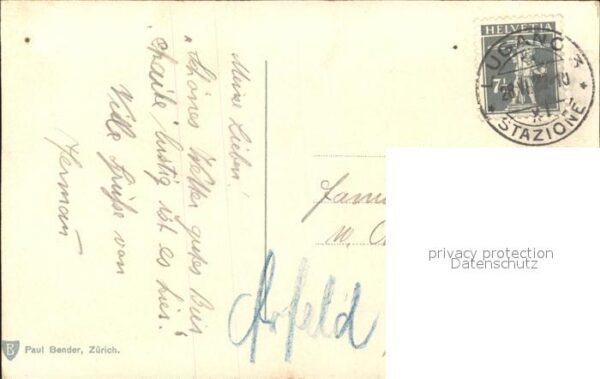 Meine Lieben!
"Schönes Wetter gutes Bier
lustig ist es hier."
Viele Grüße von
Hermann
Paul Bender, Zürich.
HELVETIA
7½
LUGANO
STAZIONE
Fam
Arfeld
privacy protection
Datenschutz